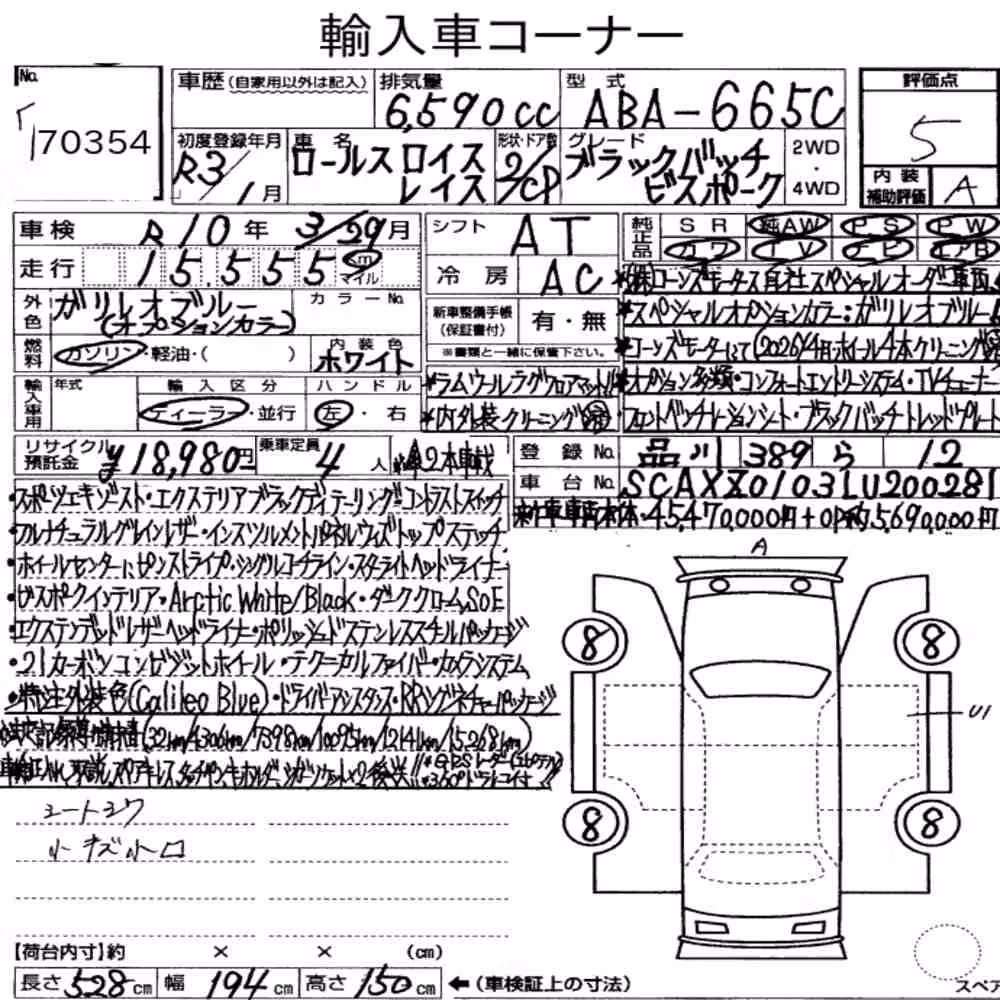 輸入車コーナー
No. 70354
車歴 (自家用以外は記入)
排気量 6,590cc
型式 ABA-665C
評価点 5
初度登録年月 R3/1月
車名 ロールスロイス レイス
形状・ドア数 2/CP
グレード ブラックバッチ ビスポーク
2WD・4WD
内装補助評価 A
車検 R10年3/29月
シフト AT
純正品 SR 純AW PS PW
カワ TV ナビ エアB
走行 15,555 km マイル
冷房 AC
外色 ガリレオブルー (オプションカラー)
カラーNo.
新車整備手帳 (保証書付) 有・無
※書類と一緒に保管下さい。
*(株)コーンズモータース自社スペシャルオーダー車両
*スペシャルオプションカラー:ガリレオブルー
*コーンズモータースにて(2026)4月ホイール4本クリーニング済
*オプション多数・コンフォートエントリーシステム・TVチューナー
フロントベンチレーションシート・ブラックバッチトレッドプレート
燃料 ガソリン・軽油・( )
内装色 ホワイト
*ラムウールラグフロアマット
*内外装クリーニング済
輸入車用 年式
輸入区分 ディーラー・並行
ハンドル 左・右
リサイクル預託金 ¥18,980円
乗車定員 4人
2本車載
登録No. 品川 389 ら 12
車台No. SCAXZ0103LU200281
新車車両本体・45,470,000円+OP約5,690,000円
・スポーツエキゾースト・エクステリアブラックディテーリング・コントラストステッチ
・フルナチュラルグレインレザー・インスツルメントパネルウィズトップステッチ
・ホイールセンターにピンストライプ・シングルコーチライン・スターライトヘッドライナー
・ビスポークインテリア・Arctic White/Black・ダーククロームSoE
・エクステンデッドレザーヘッドライナー・ポリッシュドステンレススチールパッケージ
・21カーボンコンポジットホイール・テクニカルファイバー・カメラシステム
・特注外装色(Galileo Blue)・ドライバーアシスタンス・RRシグネチャーパッケージ
記録簿 (32km/4306km/7398km/10095km/12141km/15,268km)
*GPSレーダー
*360°ドラレコ付
シートシワ
小キズ小凹
A
8
8
U1
8
8
【荷台内寸】約 × × (cm)
長さ 528cm 幅 194cm 高さ 150cm ←(車検証上の寸法)
スペア